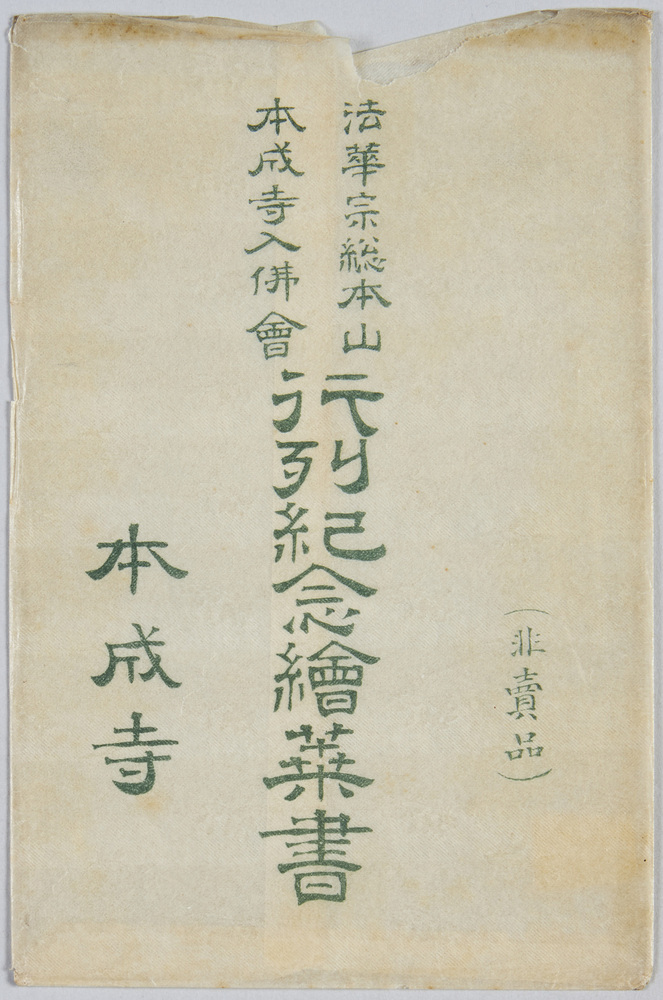 (非賣品)
法華宗総本山
本成寺入佛會
行列紀念繪葉書
本成寺